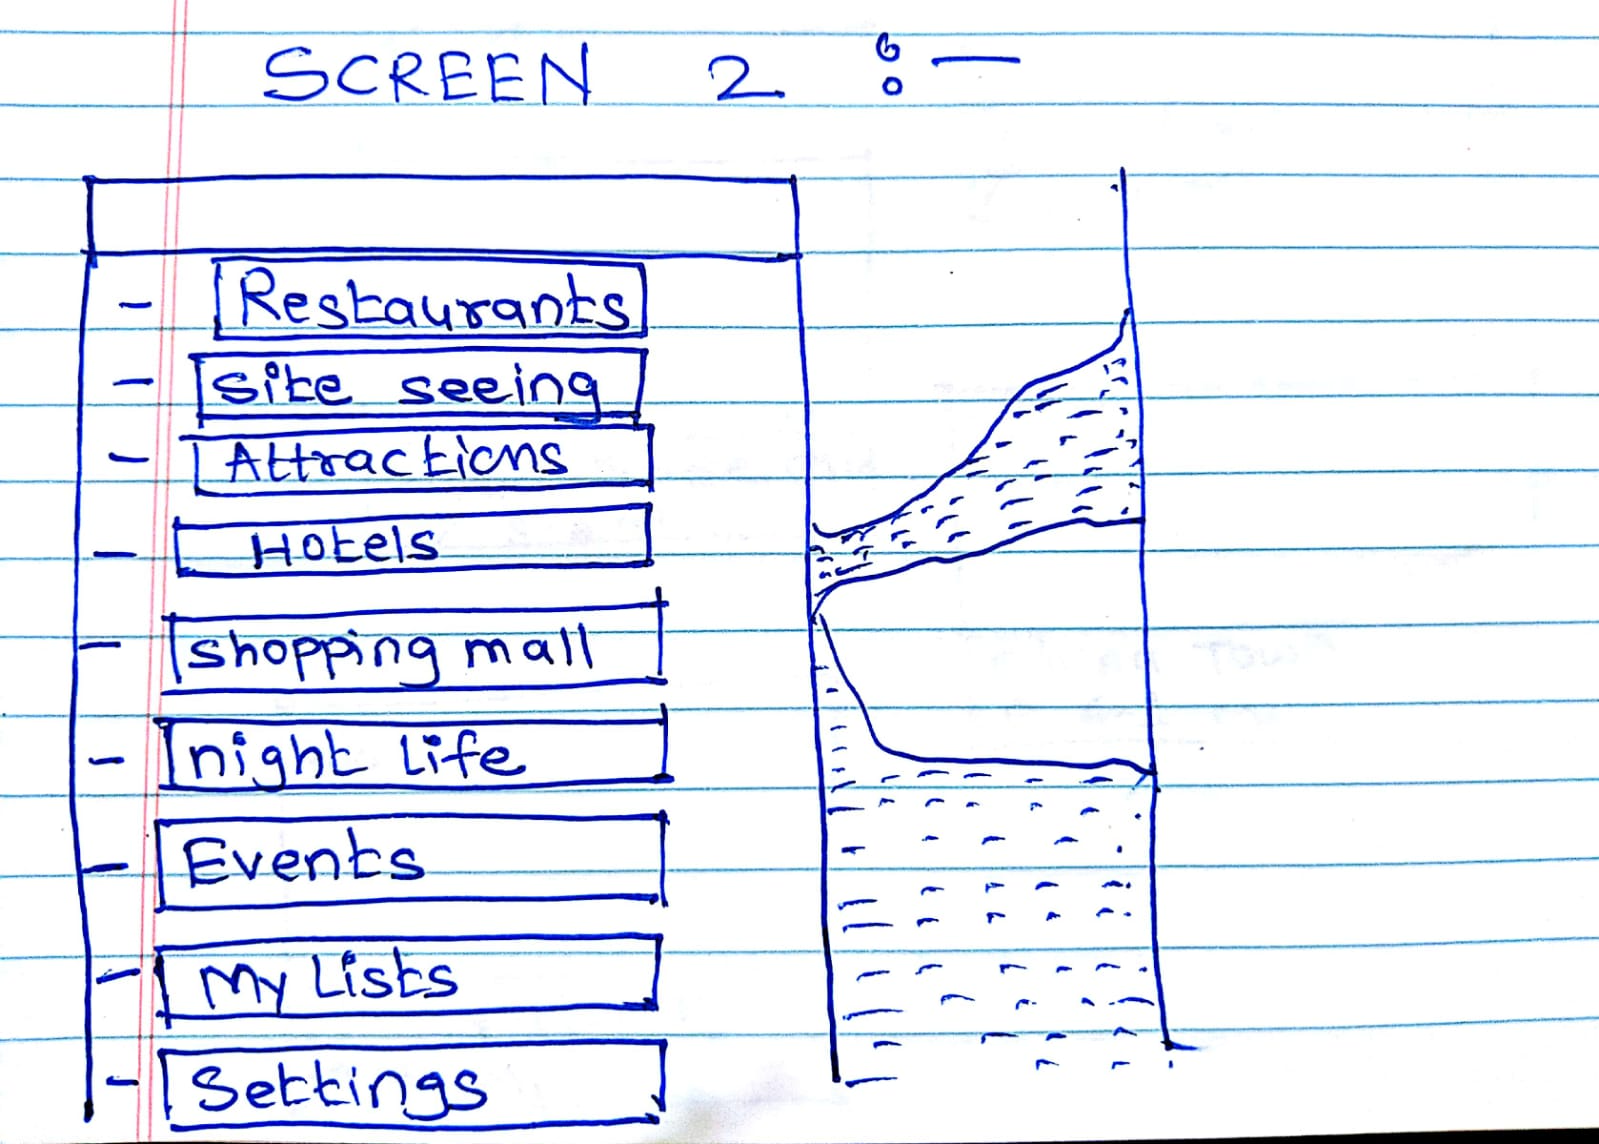 SCREEN 2 :-
- Restaurants
- Site seeing
- Attractions
- Hotels
- shopping mall
- night Life
- Events
- My Lists
- Settings